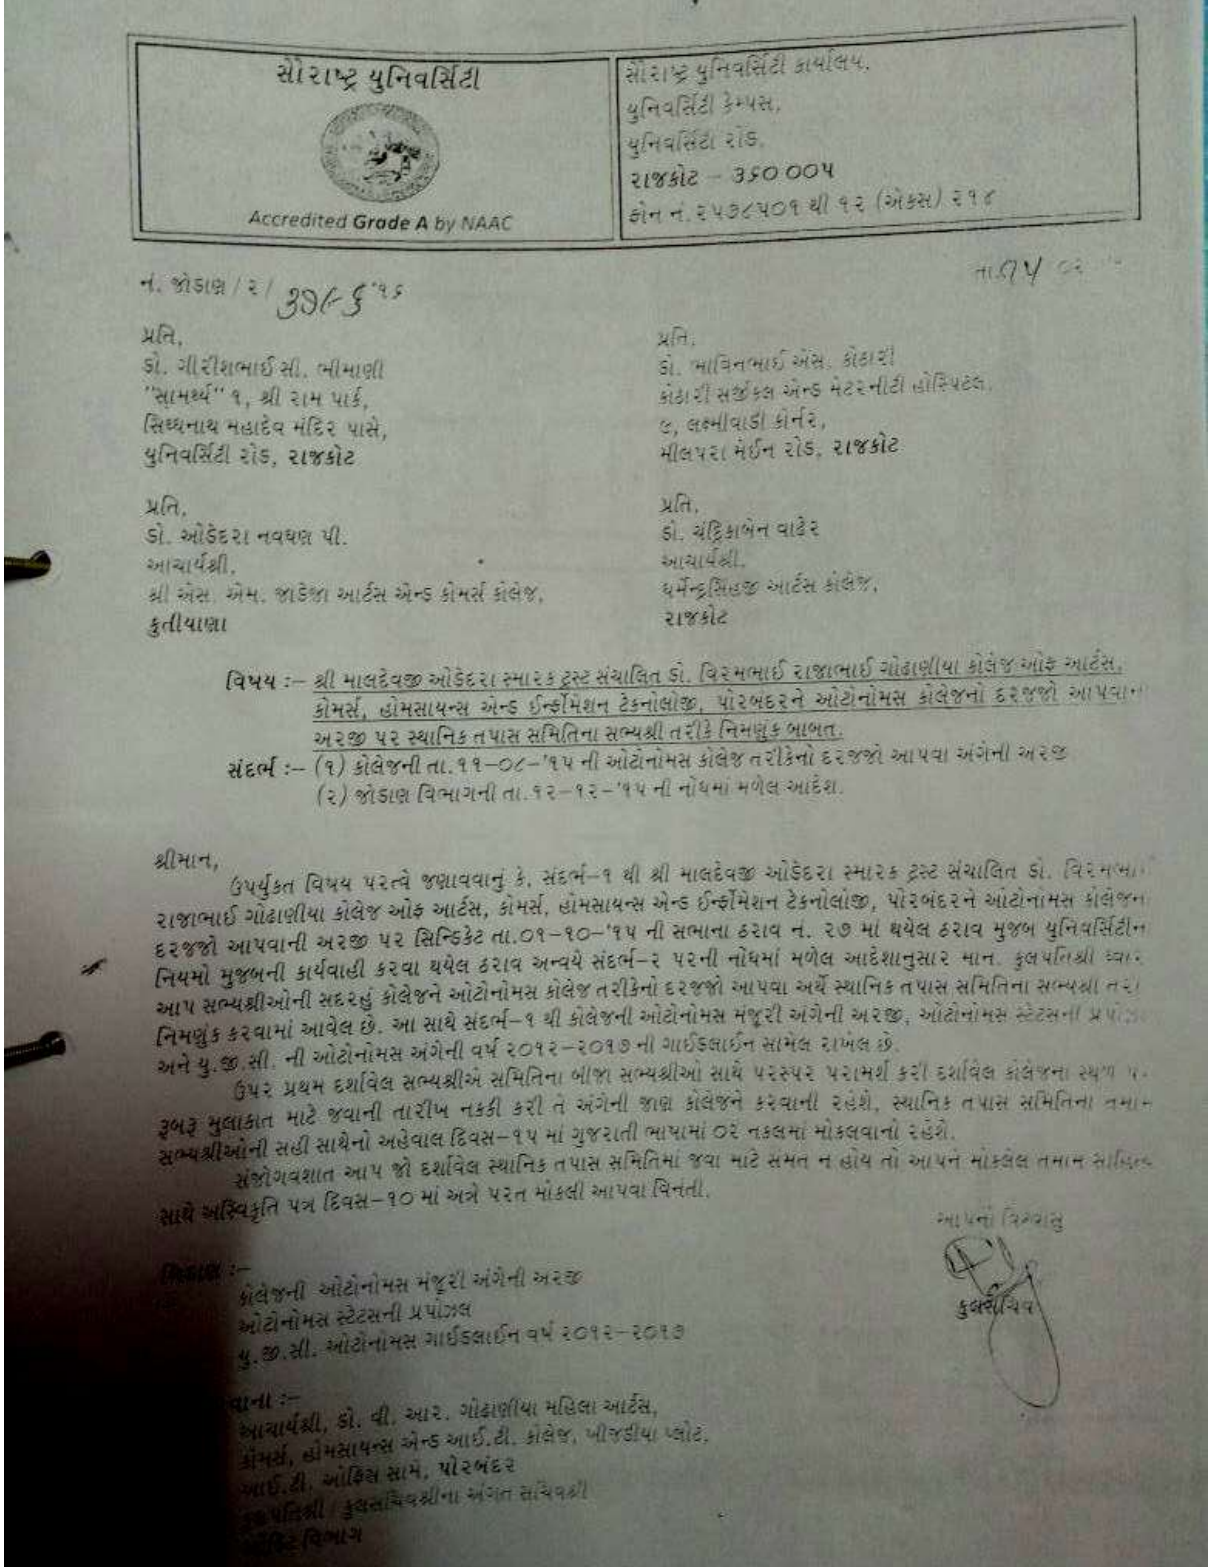 સૌરાષ્ટ્ર યુનિવર્સિટી
Accredited Grade A by NAAC
સૌરાષ્ટ્ર યુનિવર્સિટી કાર્યાલય,
યુનિવર્સિટી કેમ્પસ,
યુનિવર્સિટી રોડ,
રાજકોટ – ૩૬૦ ૦૦૫
ફોન નં. ૨૫૭૮૫૦૧ થી ૧૨ (એકસ) ૨૧૪
નં. જોડાણ / ૨ /
તા.
પ્રતિ,
ડો. ગીરીશભાઈ સી. ભીમાણી
"સામર્થ્ય" ૧, શ્રી રામ પાર્ક,
સિધ્ધનાથ મહાદેવ મંદિર પાસે,
યુનિવર્સિટી રોડ, રાજકોટ
પ્રતિ,
ડો. ભાવિનભાઈ એસ. કોઠારી
કોઠારી સર્જીકલ એન્ડ મેટરનીટી હોસ્પિટલ,
૯, લક્ષ્મીવાડી કોર્નર,
મીલપરા મેઈન રોડ, રાજકોટ
પ્રતિ,
ડો. ઓડેદરા નવઘણ પી.
આચાર્યશ્રી,
શ્રી એસ. એમ. જાડેજા આર્ટસ એન્ડ કોમર્સ કોલેજ,
કુતીયાણા
પ્રતિ,
ડો. ચંદ્રિકાબેન વાઢેર
આચાર્યશ્રી,
ધર્મેન્દ્રસિંહજી આર્ટસ કોલેજ,
રાજકોટ
વિષય :– શ્રી માલદેવજી ઓડેદરા સ્મારક ટ્રસ્ટ સંચાલિત ડો. વિરમભાઈ રાજાભાઈ ગોઢાણીયા કોલેજ ઓફ આર્ટસ,
કોમર્સ, હોમસાયન્સ એન્ડ ઈન્ફોર્મેશન ટેકનોલોજી, પોરબંદરને ઓટોનોમસ કોલેજનો દરજજો આપવાન
અરજી પર સ્થાનિક તપાસ સમિતિના સભ્યશ્રી તરીકે નિમણુંક બાબત.
સંદર્ભ :– (૧) કોલેજની તા.૧૧–૦૮–'૧૫ ની ઓટોનોમસ કોલેજ તરીકેનો દરજજો આપવા અંગેની અરજી
(૨) જોડાણ વિભાગની તા.૧૨–૧૨–'૧૫ ની નોંધમાં મળેલ આદેશ.
શ્રીમાન,
ઉપર્યુકત વિષય પરત્વે જણાવવાનું કે, સંદર્ભ–૧ થી શ્રી માલદેવજી ઓડેદરા સ્મારક ટ્રસ્ટ સંચાલિત ડો. વિરમભા
રાજાભાઈ ગોઢાણીયા કોલેજ ઓફ આર્ટસ, કોમર્સ, હોમસાયન્સ એન્ડ ઈન્ફોર્મેશન ટેકનોલોજી, પોરબંદરને ઓટોનોમસ કોલેજન
દરજજો આપવાની અરજી પર સિન્ડિકેટ તા.૦૧–૧૦–'૧૫ ની સભાના ઠરાવ નં. ૨૭ માં થયેલ ઠરાવ મુજબ યુનિવર્સિટીન
નિયમો મુજબની કાર્યવાહી કરવા થયેલ ઠરાવ અન્વયે સંદર્ભ–૨ પરની નોંધમાં મળેલ આદેશાનુસાર માન. કુલપતિશ્રી ધ્વાર
આપ સભ્યશ્રીઓની સદરહું કોલેજને ઓટોનોમસ કોલેજ તરીકેનો દરજજો આપવા અર્થે સ્થાનિક તપાસ સમિતિના સભ્યશ્રી તરી
નિમણુંક કરવામાં આવેલ છે. આ સાથે સંદર્ભ–૧ થી કોલેજની ઓટોનોમસ મંજૂરી અંગેની અરજી, ઓટોનોમસ સ્ટેટસની પ્રપોઝ
અને યુ.જી.સી. ની ઓટોનોમસ અંગેની વર્ષ ૨૦૧૨–૨૦૧૭ ની ગાઈડલાઈન સામેલ રાખેલ છે.
ઉપર પ્રથમ દર્શાવેલ સભ્યશ્રીએ સમિતિના બીજા સભ્યશ્રીઓ સાથે પરસ્પર પરામર્શ કરી દર્શાવેલ કોલેજના સ્થળ પ
રૂબરૂ મુલાકાત માટે જવાની તારીખ નકકી કરી તે અંગેની જાણ કોલેજને કરવાની રહેશે, સ્થાનિક તપાસ સમિતિના તમા
સભ્યશ્રીઓની સહી સાથેનો અહેવાલ દિવસ–૧૫ માં ગુજરાતી ભાષામાં ૦૨ નકલમાં મોકલવાનો રહેશે.
સંજોગવશાત આપ જો દર્શાવેલ સ્થાનિક તપાસ સમિતિમાં જવા માટે સંમત ન હોય તો આપને મોકલેલ તમામ સાહિત્ય
સાથે અસ્વિકૃતિ પત્ર દિવસ–૧૦ માં અત્રે પરત મોકલી આપવા વિનંતી.
આપનો વિશ્વાસુ
કુલસચિવ
કોલેજની ઓટોનોમસ મંજૂરી અંગેની અરજી
ઓટોનોમસ સ્ટેટસની પ્રપોઝલ
યુ.જી.સી. ઓટોનોમસ ગાઈડલાઈન વર્ષ ૨૦૧૨–૨૦૧૭
વાના :–
આચાર્યશ્રી, ડો. વી. આર. ગોઢાણીયા મહિલા આર્ટસ,
કોમર્સ, હોમસાયન્સ એન્ડ આઈ.ટી. કોલેજ, ખીજડીયા પ્લોટ,
આઈ.ટી. ઓફિસ સામે, પોરબંદર
કુલપતિશ્રી / કુલસચિવશ્રીના અંગત સચિવશ્રી
વિભાગ